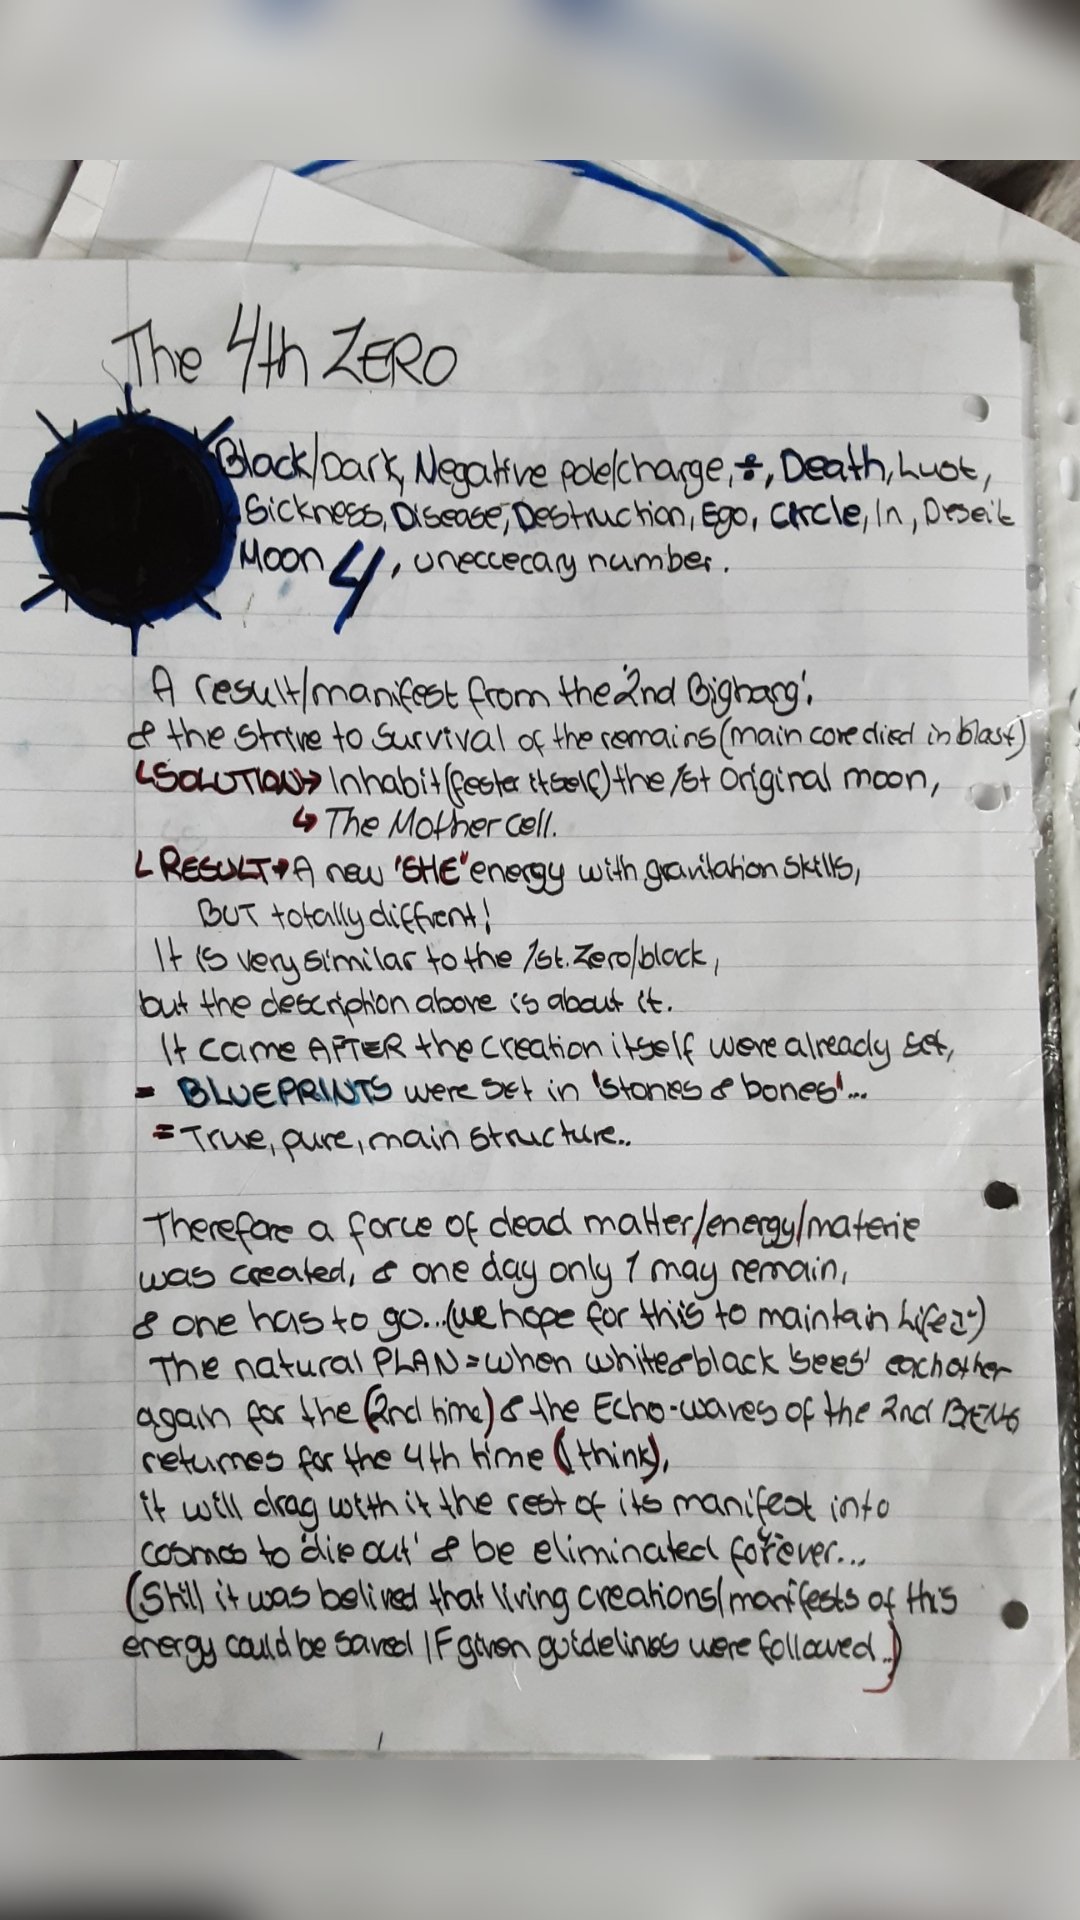 The 4th ZERO
Black/Dark, Negative pole/charge, ÷, Death, Lust,
Sickness, Disease, Destruction, Ego, Circle, In, Deseit
Moon 4, uneccecary number.
A result/manifest from the '2nd Bigbang'.
& the strive to survival of the remains (main core died in blast)
↳SOLUTION→ Inhabit (fester itself) the 1st original moon,
↳ The Mother cell.
↳RESULT→ A new 'SHE' energy with gravitation skills,
BUT totally diffrent!
It is very similar to the 1st. Zero/black,
but the description above is about it.
It came AFTER the creation itself were already set,
= BLUEPRINTS were set in 'stones & bones'...
= True, pure, main structure..
Therefore a force of dead matter/energy/materie
was created, & one day only 1 may remain,
& one has to go...(we hope for this to maintain Life :-)
The natural PLAN = when white&black 'sees' eachother
again for the (2nd time) & the Echo-waves of the 2nd BENG
returnes for the 4th time (I think),
it will drag with it the rest of its manifest into
cosmos to 'die out' & be eliminated forever...
(Still it was belived that living creations/manifests of this
energy could be saved IF given guidelines were followed..)